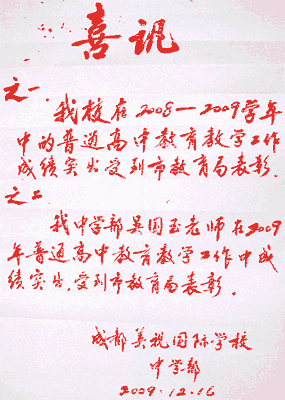 喜讯
之一.
我校在2008—2009学年
中的普通高中教育教学工作
成绩突出受到市教育局表彰.
之二
我中学部吴国玉老师在2009
年普通高中教育教学工作中成
绩突出,受到市教育局表彰.
成都美视国际学校
中学部
2009.12.16